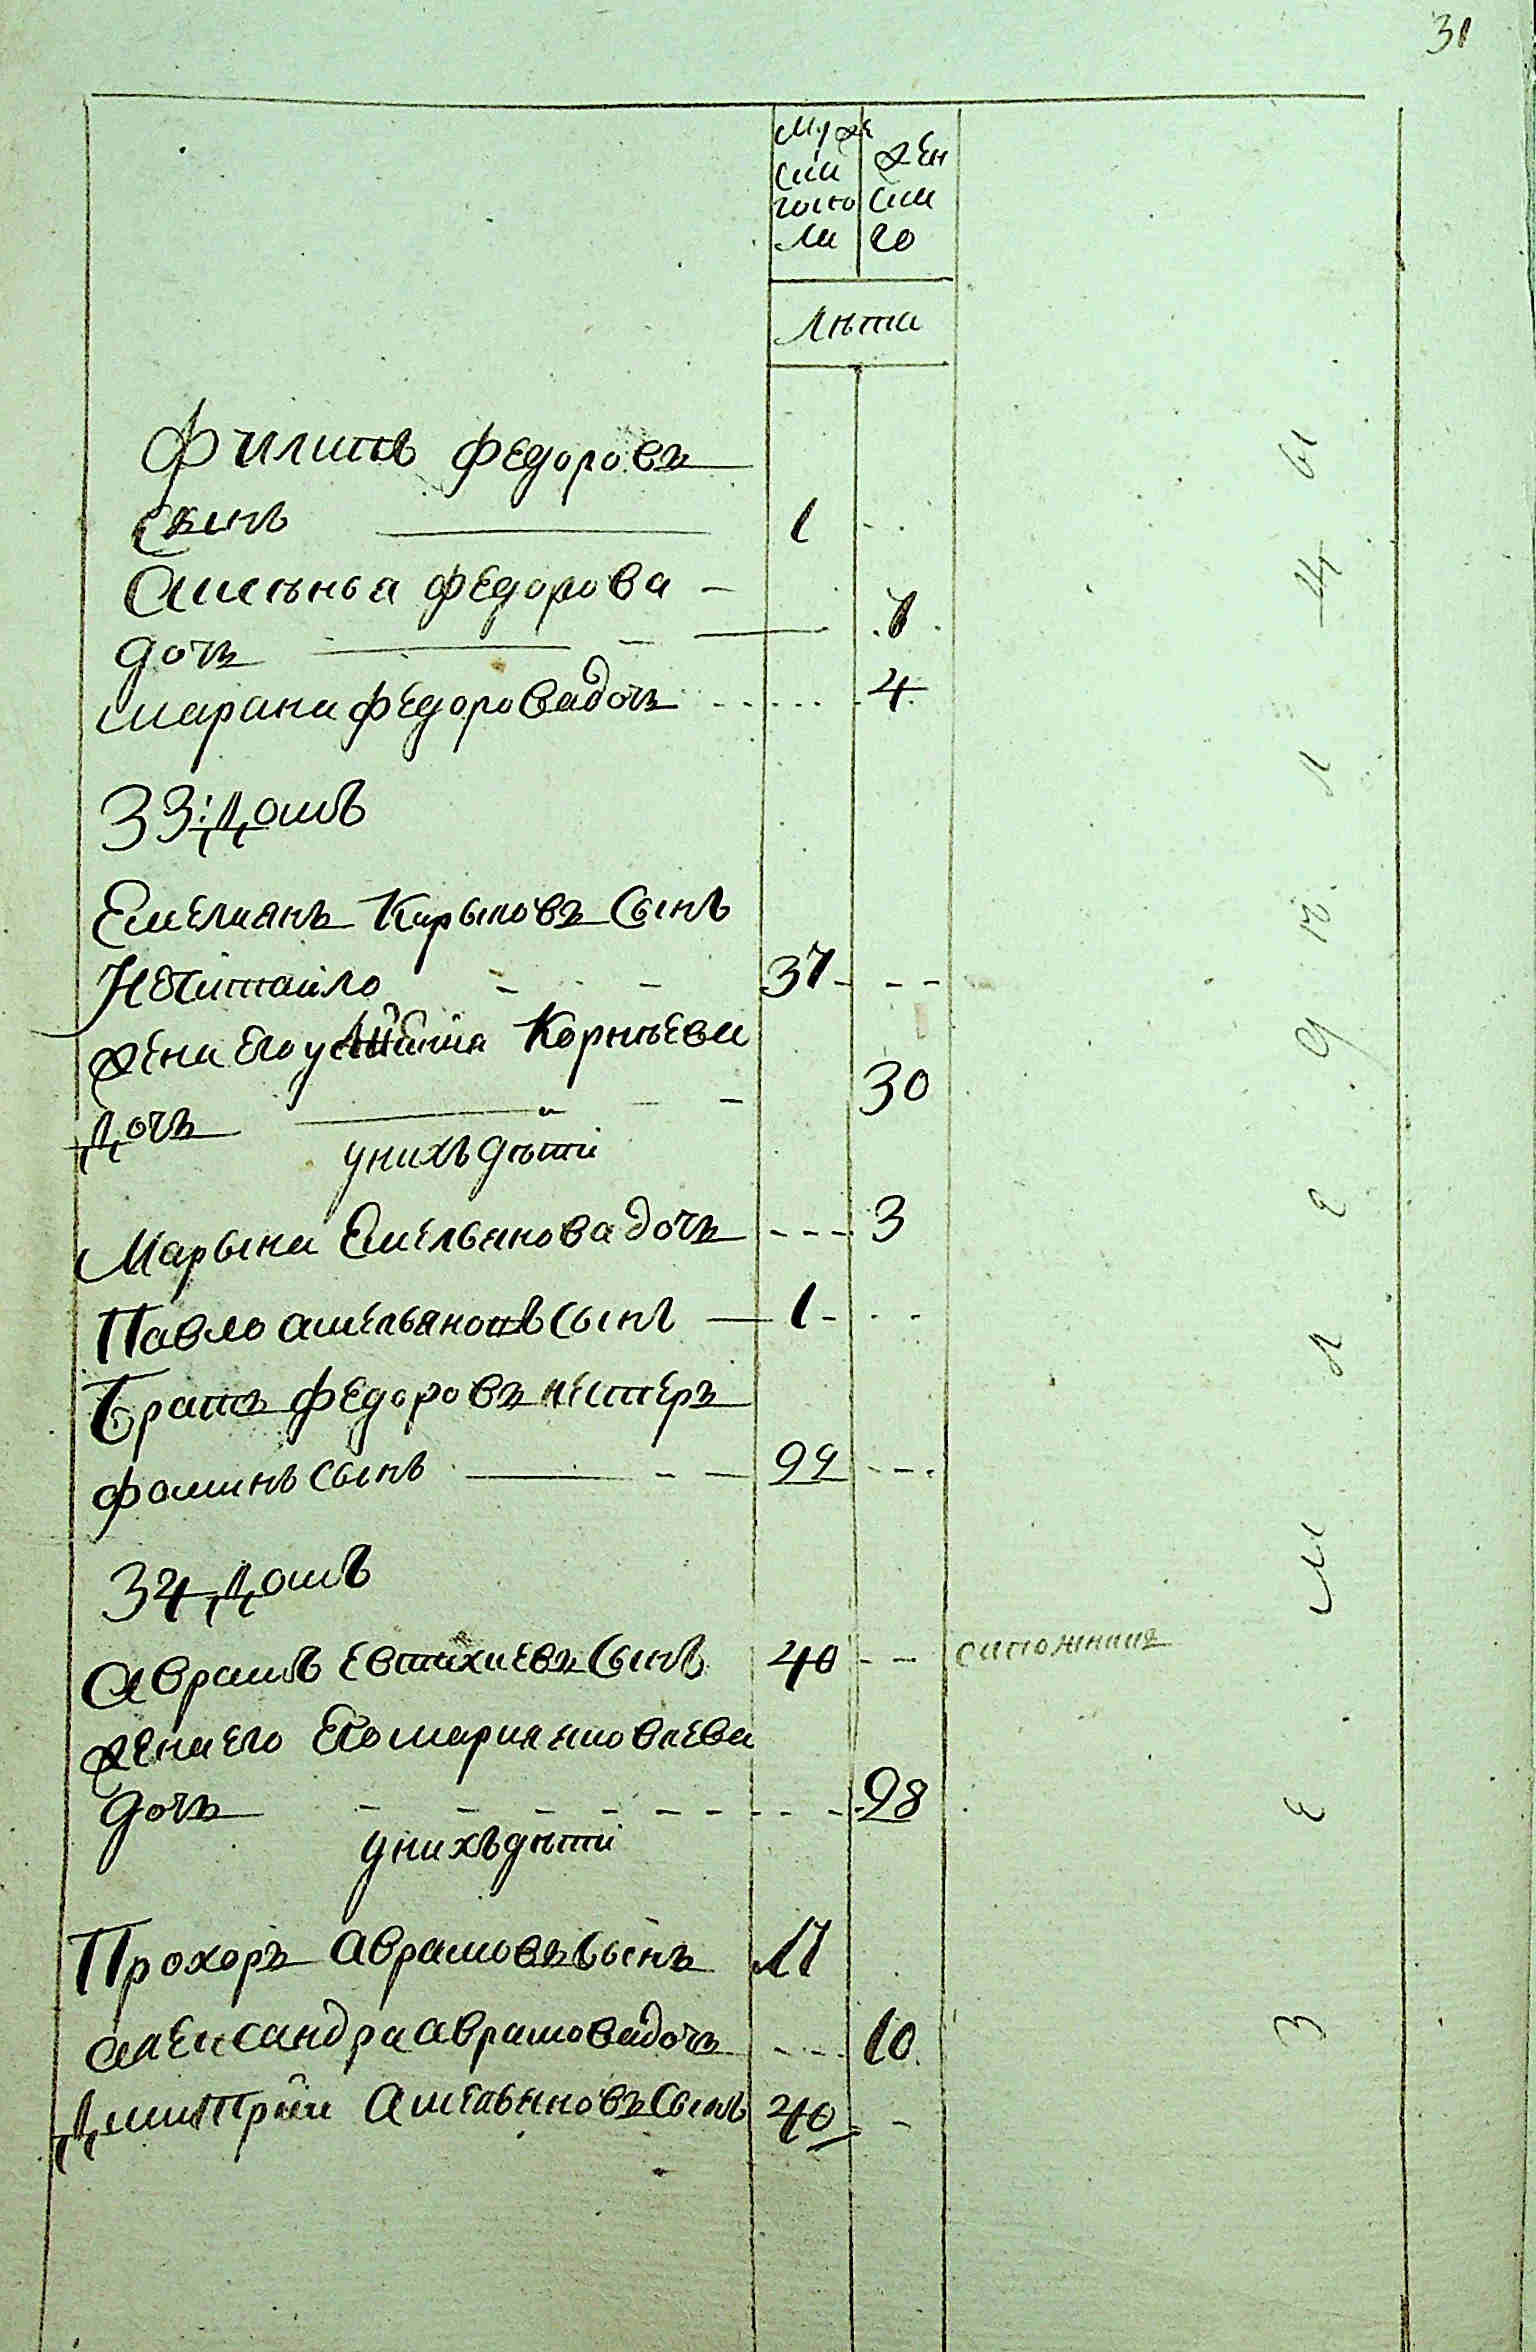 31
Муже
ска
гопо
ла
жен
ска
го
Лѣта
Филипъ Федоровъ
Сынъ 1
Федорова
дочъ 7
Марина Федорова дочъ 4
33: Домъ
Емелианъ Карыповъ Сынъ
Нечитайло 37
жена его Корнѣева
дочъ 30
у нихъ дѣти
Марына Емельянова дочъ 3
Павло Амельяновъ Сынъ 1
Братъ Федоровъ Нестеръ
Фоминъ Сынъ 99
34 Домъ
Аврамъ Евтихиевъ Сынъ 40
жена его Яковлева
дочъ 98
у нихъ дѣти
Прохоръ Аврамовъ Сынъ 17
Александра Аврамова дочъ 10
Дмитрий Амельяновъ Сынъ 40
З е м л е д ч л ц ы